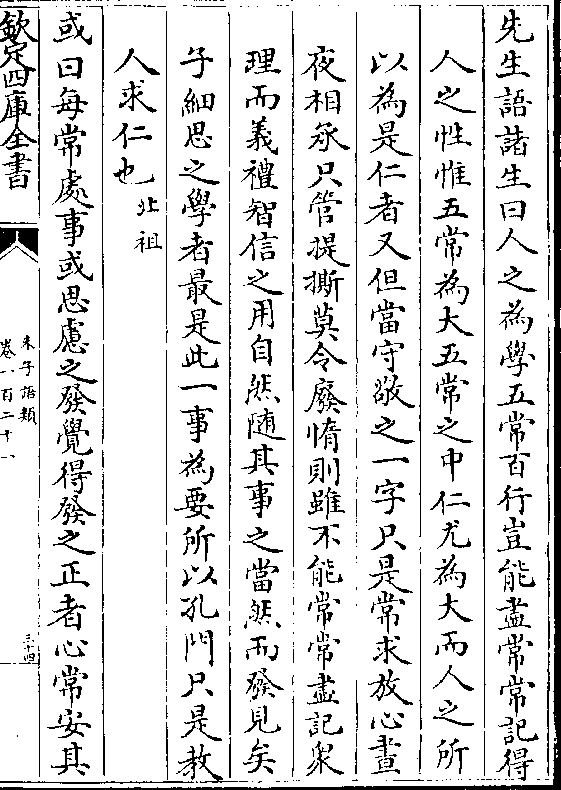 先生語諸生曰人之為學五常百行豈能盡常常記得
人之性惟五常為大五常之中仁尤為大而人之所
以為是仁者又但當守敬之一字只是常求放心晝
夜相承只管提撕莫令廢惰則雖不能常常盡記衆
理而義禮智信之用自然随其事之當然而發見矣
子細思之學者最是此一事為要所以孔門只是教
人求仁也北祖
或曰每常處事或思慮之發覺得發之正者心常安其
欽定四庫全書
朱子語類
卷一百二十一
三十四